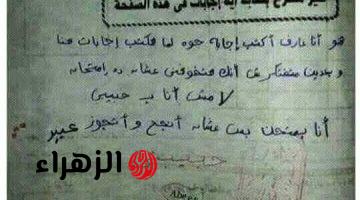 غير مسموح بكتابة أية إجابات في هذه الصفحة
هو أنا عارف أكتب إجابة جوه لما هكتب إجابات هنا
وبعدين متفتكرش أنك هتخوفني عشان ده إمتحان
لا مش أنا يا حبيبي
أنا بمتحن بس عشان أنجح وأتجوز عبير
الزهراء